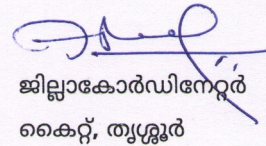 ജില്ലാകോർഡിനേറ്റർ
കൈറ്റ്, തൃശ്ശൂർ